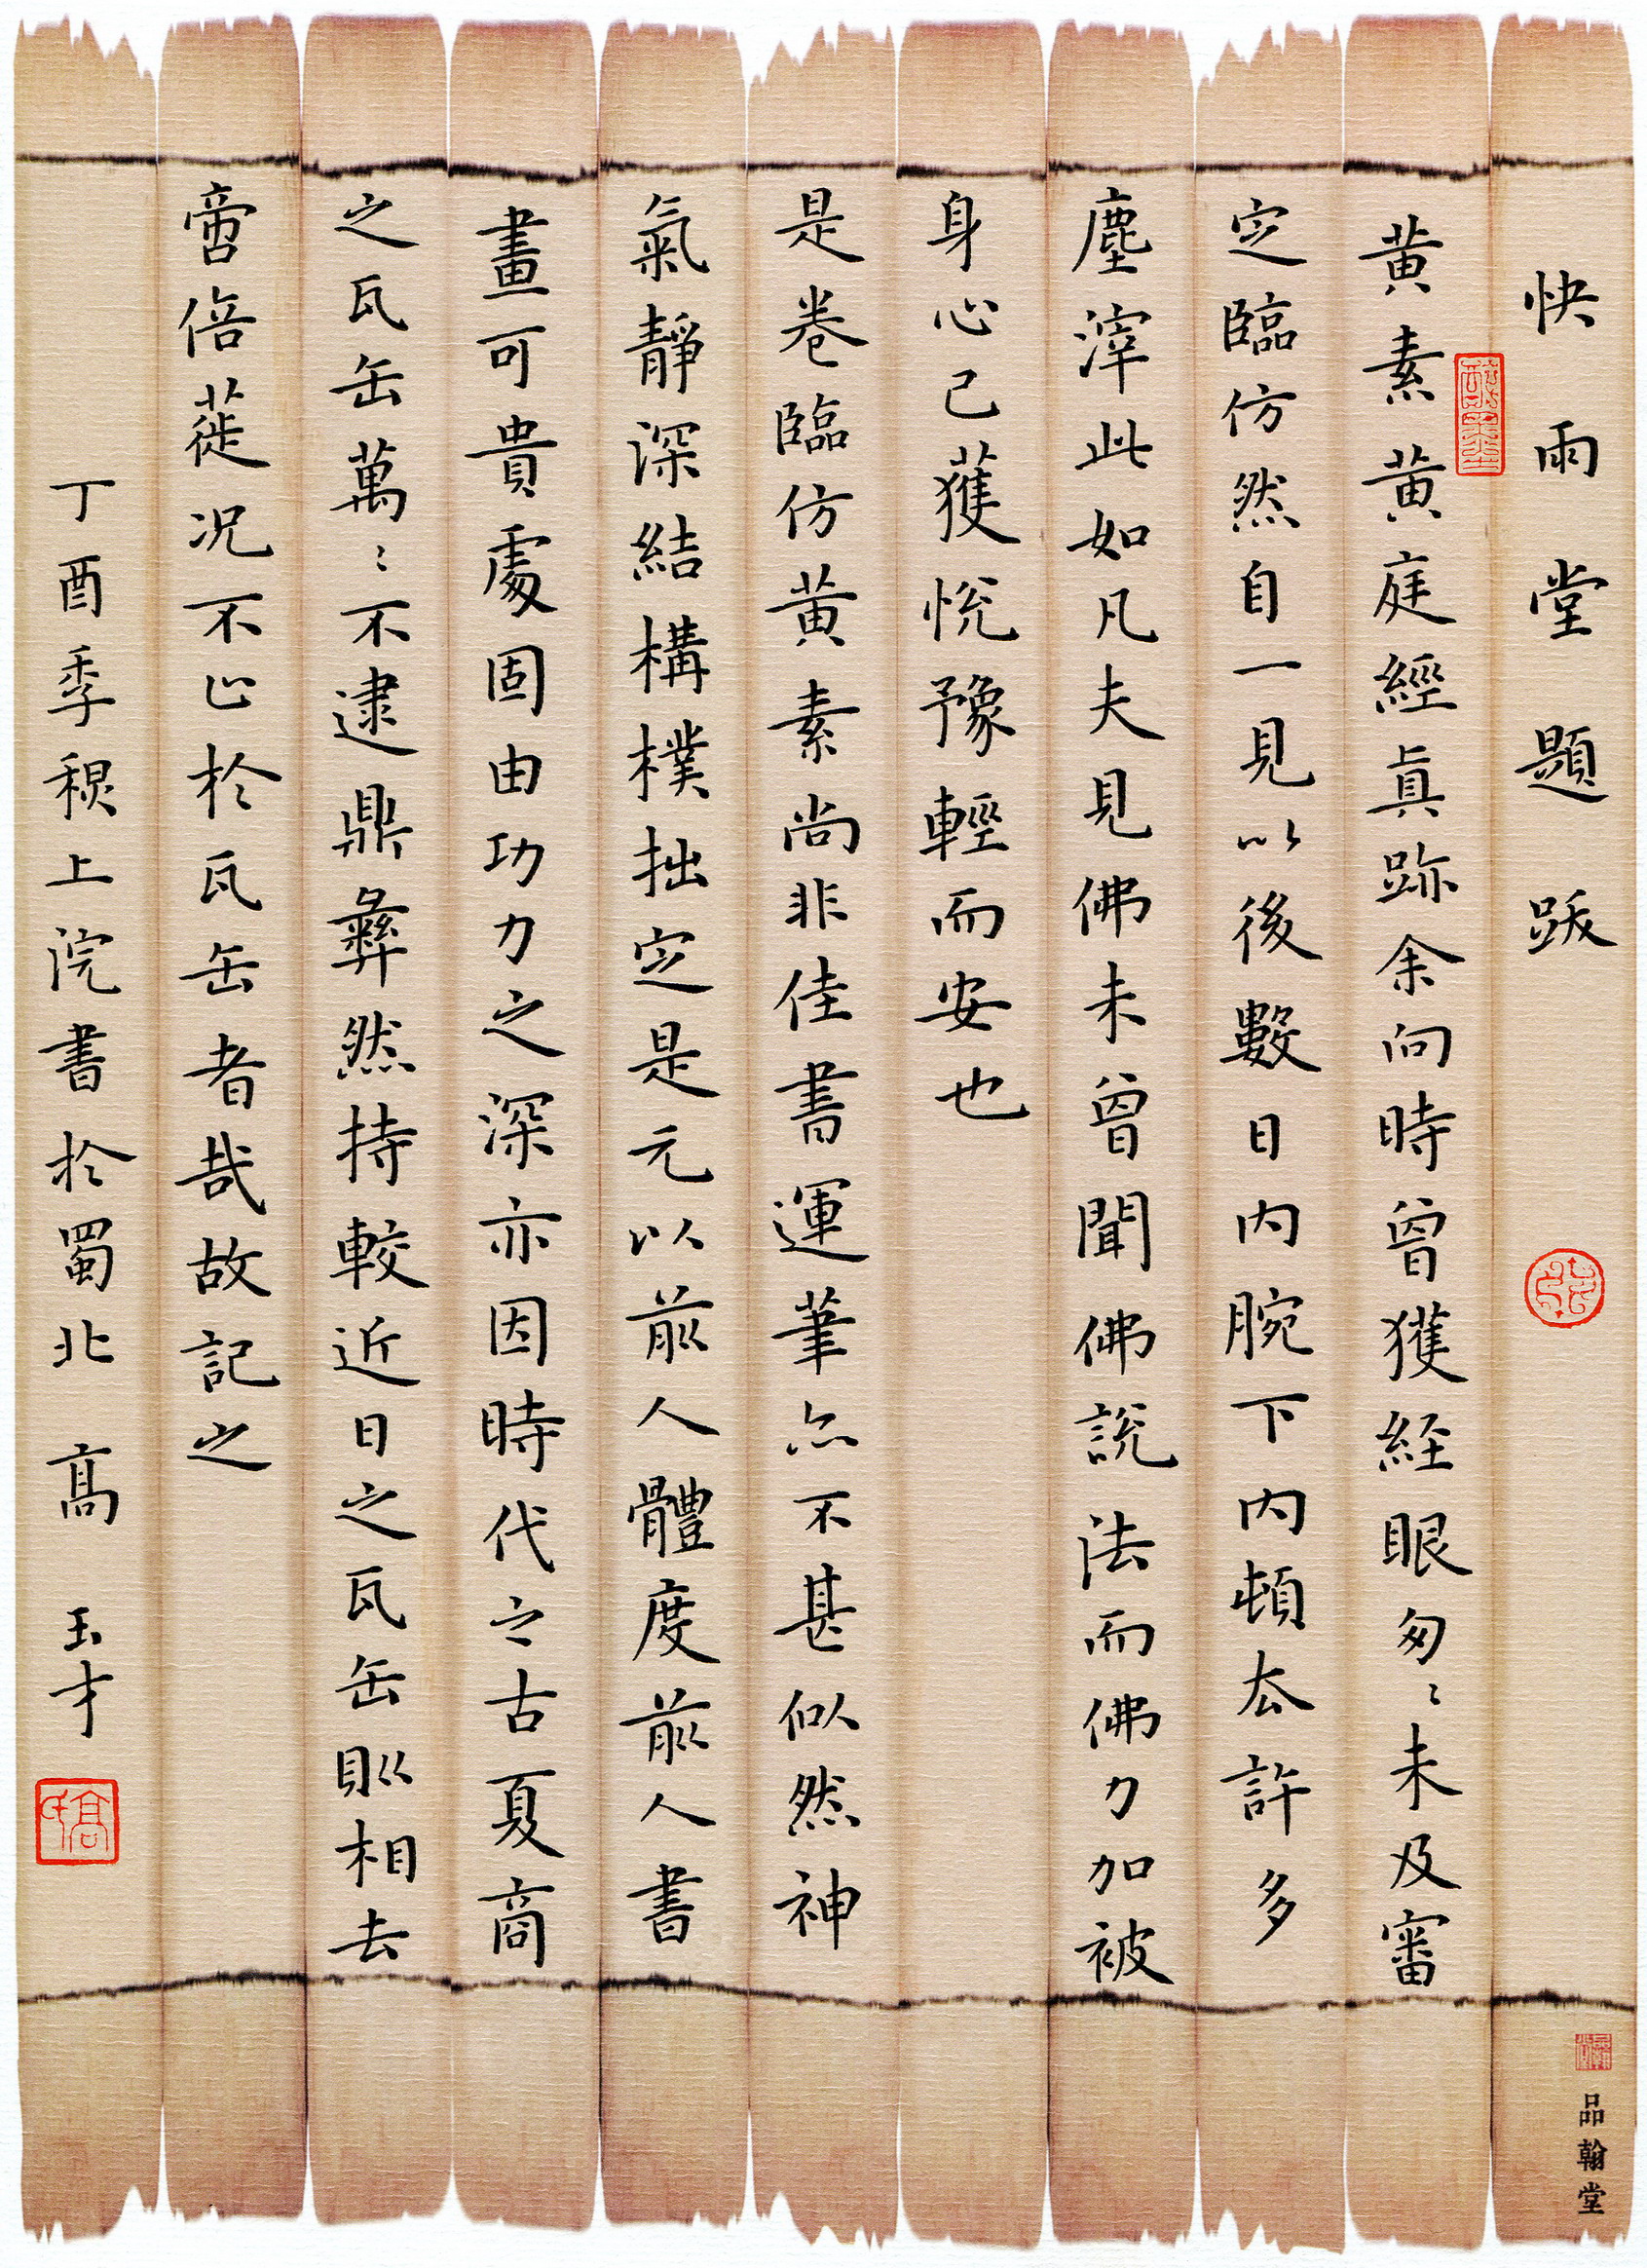 快雨堂題跋
黃素黃庭經眞跡余向時曾獲經眼匆〻未及審
定臨仿然自一見以後數日內腕下內頓厺許多
塵滓此如凡夫見佛未曾聞佛說法而佛力加被
身心已獲悅豫輕而安也
是卷臨仿黃素尚非佳書運筆亦不甚似然神
氣靜深結構樸拙定是元以前人體度前人書
畫可貴處固由功力之深亦因時代之古夏商
之瓦缶萬〻不逮鼎彝然持較近日之瓦缶則相去
啻倍蓰况不止於瓦缶者哉故記之
丁酉季穐上浣書於蜀北 高 玉才
品翰堂